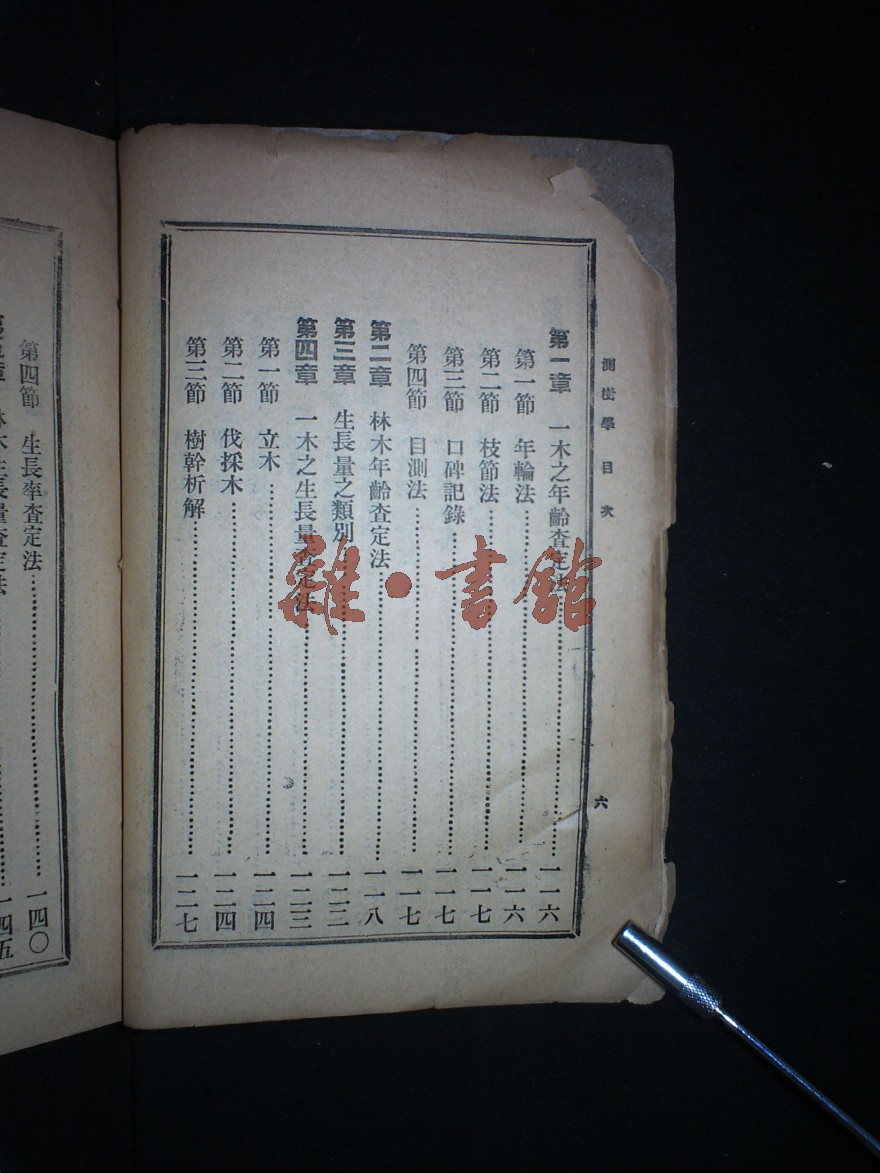 測樹學目次
六
第一章 一木之年齡査定法……一一六
第一節 年輪法……一一六
第二節 枝節法……一一七
第三節 口碑記錄……一一七
第四節 目測法……一一七
第二章 林木年齡査定法……一一八
第三章 生長量之類別……一二二
第四章 一木之生長量査定法……一二三
第一節 立木……一二四
第二節 伐採木……一二四
第三節 樹幹析解……一二七
第四節 生長率査定法……一四〇
林木生長量査定法……一四五
雜·書館